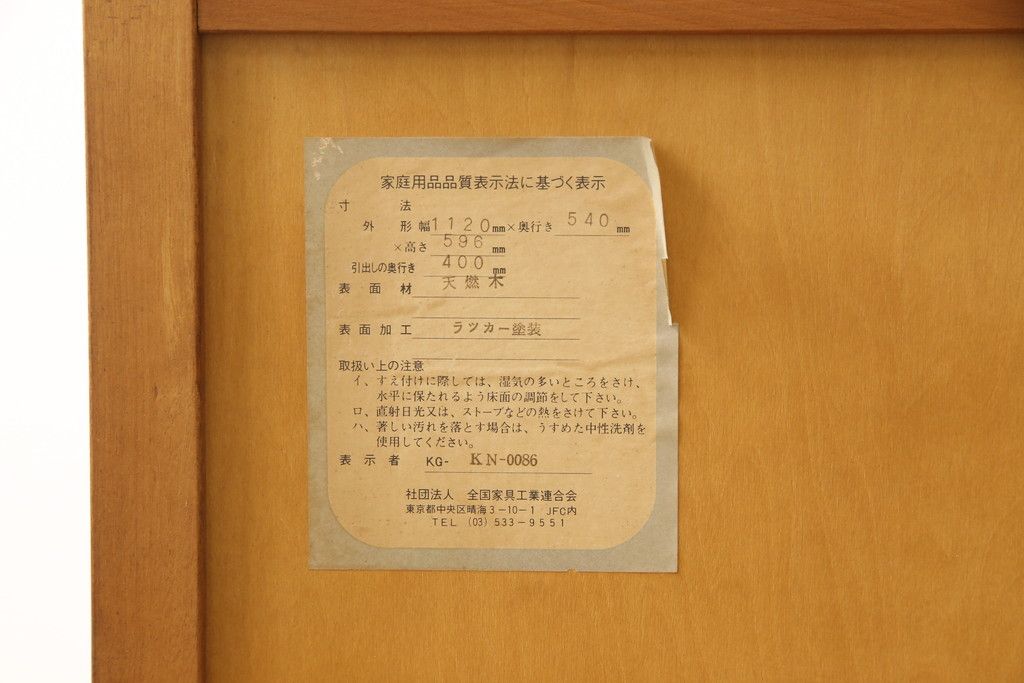 家庭用品品質表示法に基づく表示
寸法
外形 幅1120mm×奥行き540mm
×高さ596mm
引出しの奥行き400mm
表面材 天燃木
表面加工 ラツカー塗装
取扱い上の注意
イ、すえ付けに際しては、湿気の多いところをさけ、
水平に保たれるよう床面の調節をして下さい。
ロ、直射日光又は、ストーブなどの熱をさけて下さい。
ハ、著しい汚れを落とす場合は、うすめた中性洗剤を
使用してください。
表示者 KG- KN-0086
社団法人 全国家具工業連合会
東京都中央区晴海3-10-1 JFC内
TEL (03)533-9551